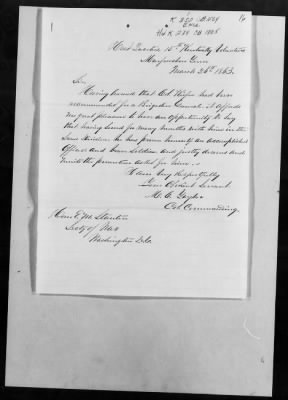 Head Quarters 15th Kentucky Volunteers
Murfreesboro Tenn
March 26th 1863.
Sir
Having learned that Col. had been
recommended for a Brigadier General. it affords
me great pleasure to have an opportunity to say
that having served for many months with him in the
same division he has proven himself an accomplished
Officer and brave Soldier and justly deserves and
merits the promotion asked for him
I am Very Respectfully
Your Obedient Servant
Col Commanding.
Hon E M Stanton
Secty of War
Washington D.C.